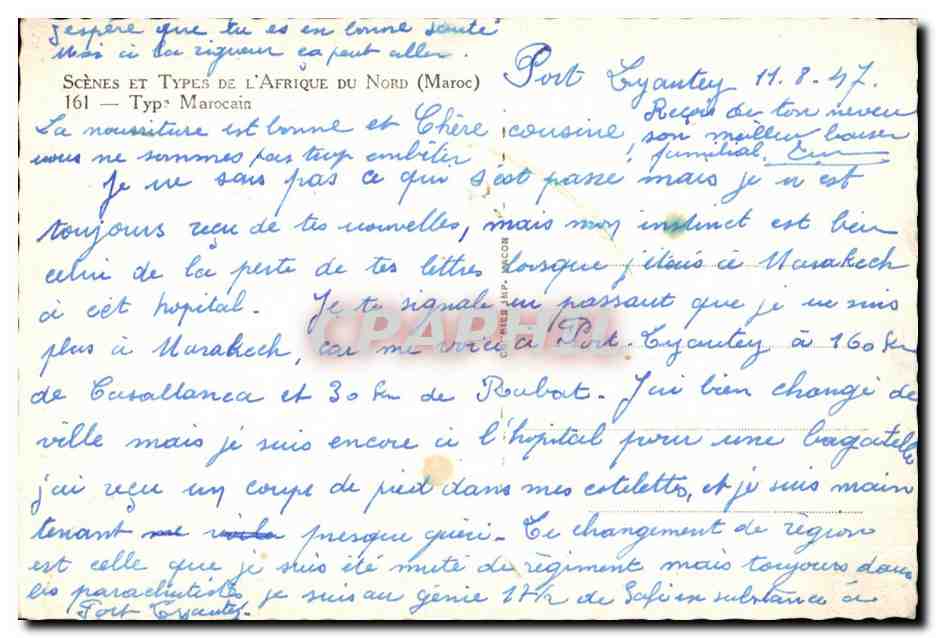 j'espère que tu es en bonne santé
Moi à la rigueur ça peut aller.
SCÈNES ET TYPES DE L'AFRIQUE DU NORD (MAROC)
161 — Type Marocain
Port Lyautey 11-8-47.
Reçois de ton neveu
son meilleur baiser
familial.
La nourriture est bonne et
nous ne sommes pas trop embêter
Chère cousine,
Je ne sais pas ce qui s'est passé mais je n'est
toujours reçu de tes nouvelles, mais mon instinct est bien
celui de la perte de tes lettres lorsque j'étais à Marakech
à cet hopital. Je te signale en passant que je ne suis
plus à Marakech, car me voici à Port-Lyautey à 160 km
de Casablanca et 30 km de Rabat. J'ai bien changé de
ville mais je suis encore à l'hopital pour une bagatelle
j'ai reçu un coups de pied dans mes cotelettes, et je suis main
tenant presque guéri. Ce changement de région
est celle que je suis été muté de régiment mais toujours dans
les parachutistes je suis au génie de en substance à
Port Lyautey.
COMBIER IMP. MACON
CPARHI